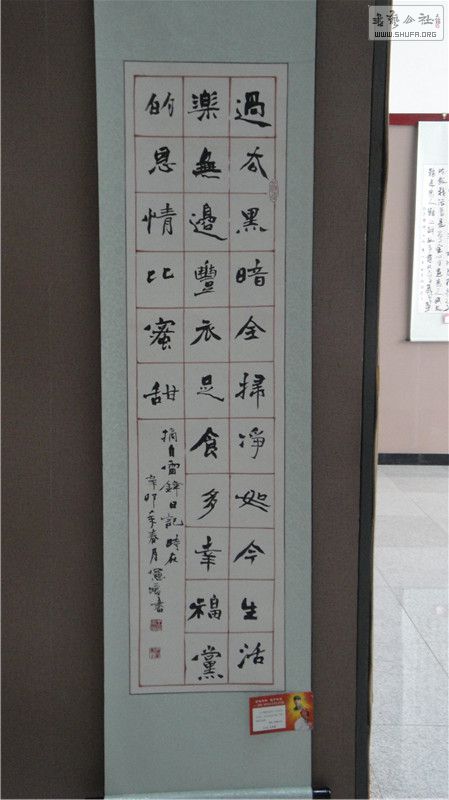 書藝公社
WWW.SHUFA.ORG
過去黑暗全掃淨如今生活
樂無邊豐衣足食多幸福黨
的恩情比蜜甜
摘自雷鋒日記時在
辛卯年春月書